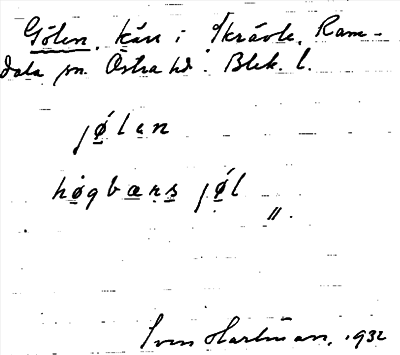 Gölen, kärr i Skrävle, Ram-
dala sn. Östra hd. Blek. l.
jǿ̱lan
hø̱gbæ̱ṉs̱ jǿ̱l
〃.
Sven Hartman, 1932